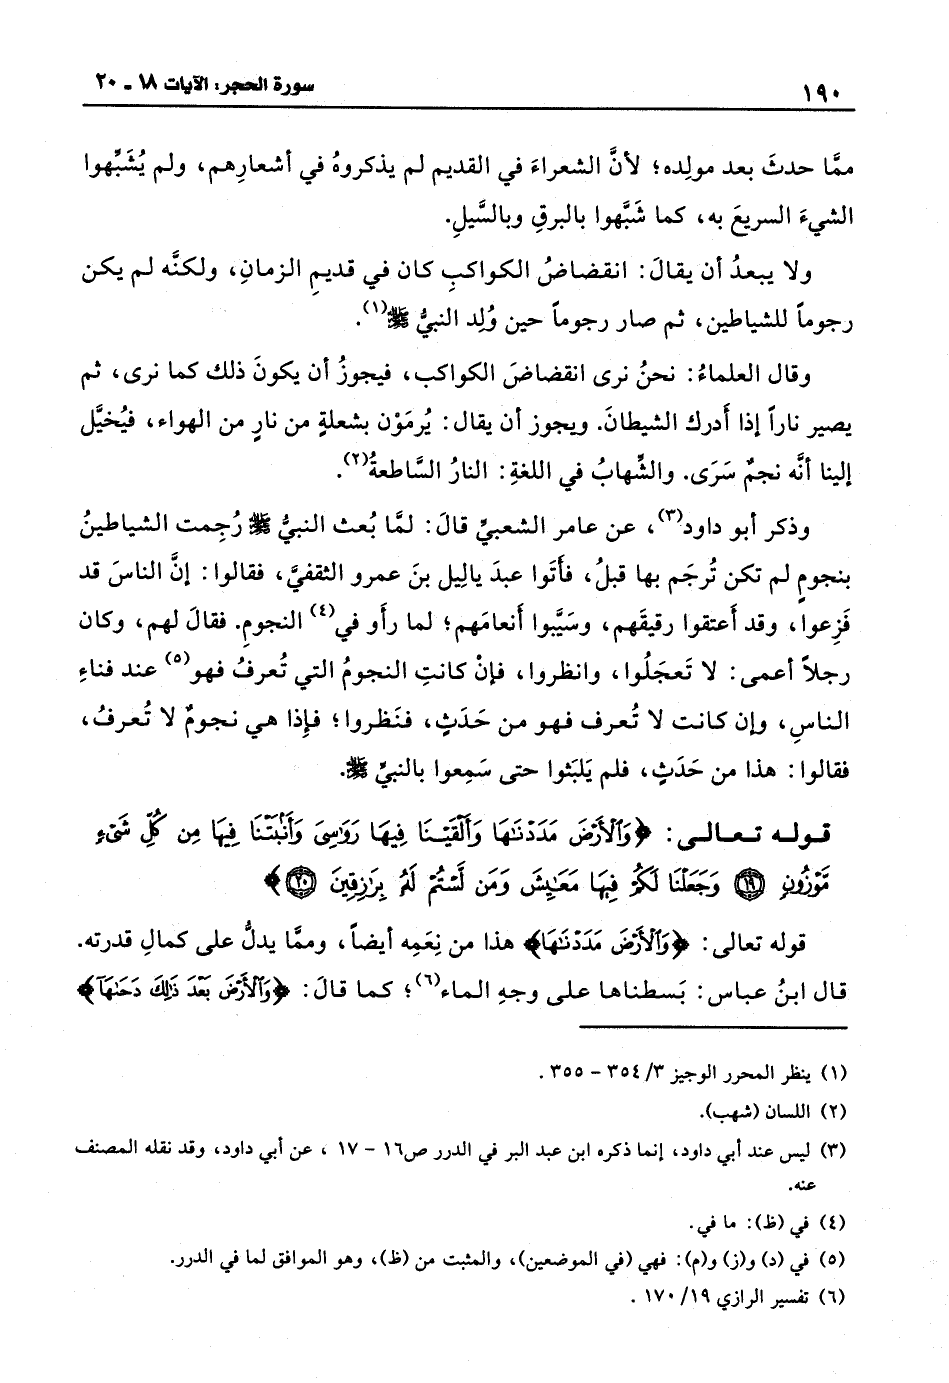 ١٩٠
سورة الحجر: الآيات ١٨ - ٢٠
ممَّا حدثَ بعد مولِده؛ لأنَّ الشعراءَ في القديم لم يذكروهُ في أشعارِهم، ولم يُشَبِّهوا
الشيءَ السريعَ به، كما شَبَّهوا بالبرقِ وبالسَّيلِ.
ولا يبعدُ أن يقالَ: انقضاضُ الكواكبِ كان في قديمِ الزمانِ، ولكنَّه لم يكن
رجوماً للشياطين، ثم صار رجوماً حين وُلِد النبيُّ ﷺ(١).
وقال العلماءُ: نحنُ نرى انقضاضَ الكواكب، فيجوزُ أن يكونَ ذلك كما نرى، ثم
يصير ناراً إذا أَدرك الشيطانَ. ويجوز أن يقال: يُرمَوْن بشعلةٍ من نارٍ من الهواء، فيُخيَّل
إلينا أنَّه نجمٌ سَرَى. والشِّهابُ في اللغةِ: النارُ السَّاطعةُ(٢).
وذكر أبو داود(٣)، عن عامر الشعبيِّ قالَ: لمَّا بُعث النبيُّ ﷺ رُجِمت الشياطينُ
بنجومٍ لم تكن تُرجَم بها قبلُ، فأَتَوا عبدَ يالِيل بنَ عمرو الثقفيَّ، فقالوا: إنَّ الناسَ قد
فَزِعوا، وقد أَعتقوا رقيقَهم، وسَيَّبوا أنعامَهم؛ لما رأَو في(٤) النجومِ. فقالَ لهم، وكان
رجلاً أعمى: لا تَعجَلُوا، وانظروا، فإنْ كانتِ النجومُ التي تُعرفُ فهو(٥) عند فناءِ
الناسِ، وإن كانت لا تُعرف فهو من حَدَثٍ، فنَظروا؛ فإِذا هي نجومٌ لا تُعرفُ،
فقالوا: هذا من حَدَثٍ، فلم يَلبَثوا حتى سَمِعوا بالنبيِّ ﷺ.
قولـه تعـالـى: ﴿وَٱلْأَرْضَ مَدَدْنَٰهَا وَأَلْقَيْنَا فِيهَا رَوَٰسِيَ وَأَنۢبَتْنَا فِيهَا مِن كُلِّ شَيْءٍ
مَّوْزُونٍ ⑲ وَجَعَلْنَا لَكُمْ فِيهَا مَعَٰيِشَ وَمَن لَّسْتُمْ لَهُۥ بِرَٰزِقِينَ ⑳﴾
قوله تعالى: ﴿وَٱلْأَرْضَ مَدَدْنَٰهَا﴾ هذا من نِعَمِه أيضاً، وممَّا يدلُّ على كمالِ قدرته.
قال ابنُ عباس: بَسطناها على وجهِ الماء(٦)؛ كما قالَ: ﴿وَٱلْأَرْضَ بَعْدَ ذَٰلِكَ دَحَىٰهَآ﴾
(١) ينظر المحرر الوجيز ٣/ ٣٥٤ - ٣٥٥ .
(٢) اللسان (شهب).
(٣) ليس عند أبي داود، إنما ذكره ابن عبد البر في الدرر ص١٦ - ١٧ ، عن أبي داود، وقد نقله المصنف
عنه.
(٤) في (ظ): ما في.
(٥) في (د) و(ز) و(م): فهي (في الموضعين)، والمثبت من (ظ)، وهو الموافق لما في الدرر.
(٦) تفسير الرازي ١٩/ ١٧٠ .